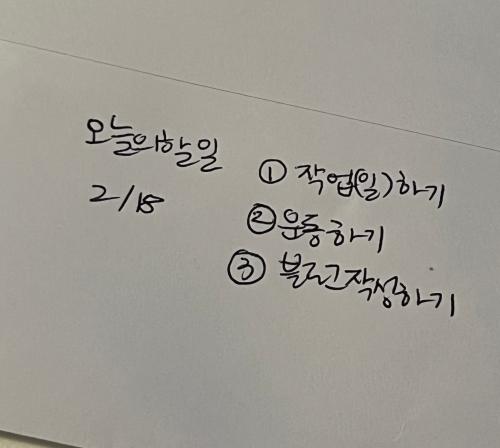 오늘의할일
2/18
① 작업(일)하기
② 운동하기
③ 블로그작성하기